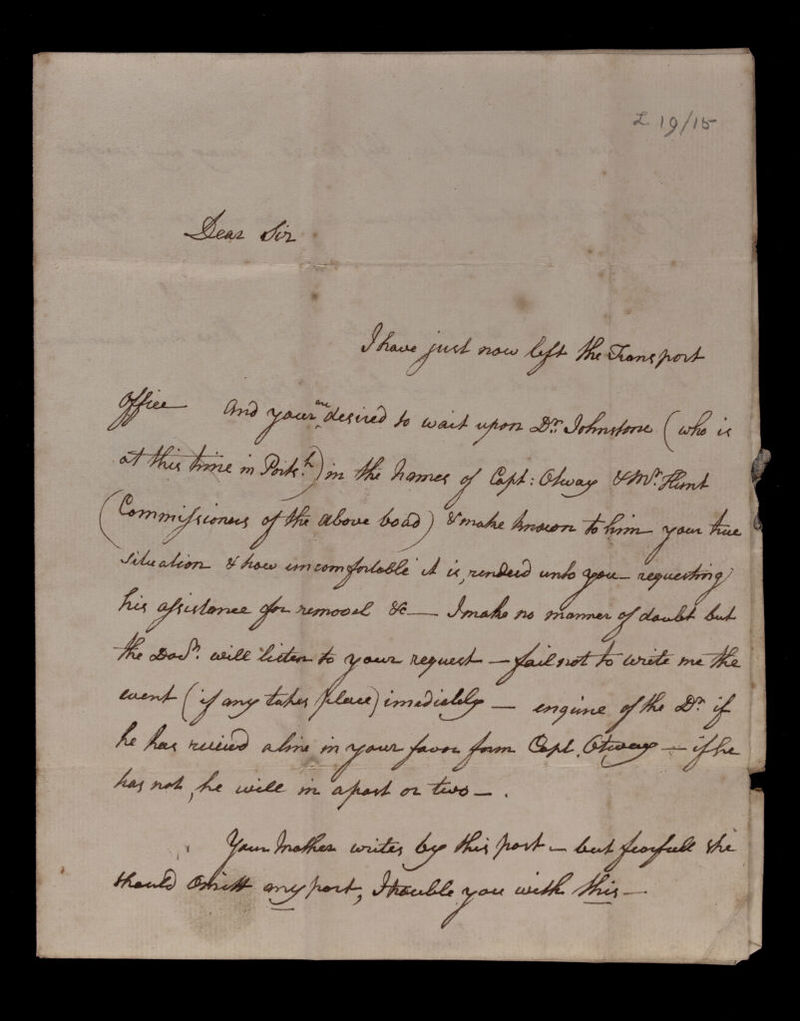 L 19/15
Dear Sir
I have just now left the Transport
Office And your are desired to wait upon Dr. Johnstone (who is
at this time in Ports.h) in the names of Capt: Otway & Mr. Hunt
(Commissioners of the above boad) & make known to him your true
situation & how uncomfortable it is, renderd unto you – requesting
his assistance for removel &c — I make no manner of doubt but
the Doctr. will listen to your request — fail not to write me the
event (if any takes place) imediately — enquire of the Dr. if
he has recieved a line in your favor form Capt. Otway — if he
has not, he will in a post or two — .
Your Mother writes by this post — but fearfull she
should omitt any part, I trouble you with this —